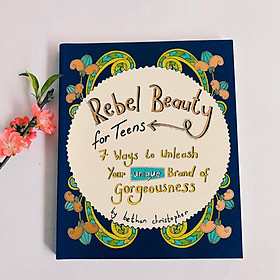 Rebel Beauty
for Teens
7 Ways to Unleash
Your unique Brand of
Gorgeousness
by bethan christopher